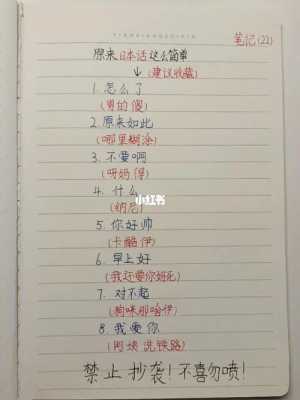 笔记(22)
原来日本话这么简单
↓(建议收藏)
1. 怎么了
(男的傻)
2. 原来如此
(哪里糊涂)
3. 不要啊
(呀妈得)
4. 什么
(纳尼)
小红书
5. 你好帅
(卡酷伊)
6. 早上好
(我还要你姐死)
7. 对不起
(狗咪那哈伊)
8. 我爱你
(阿姨洗铁路)
禁止抄袭!不喜勿喷!